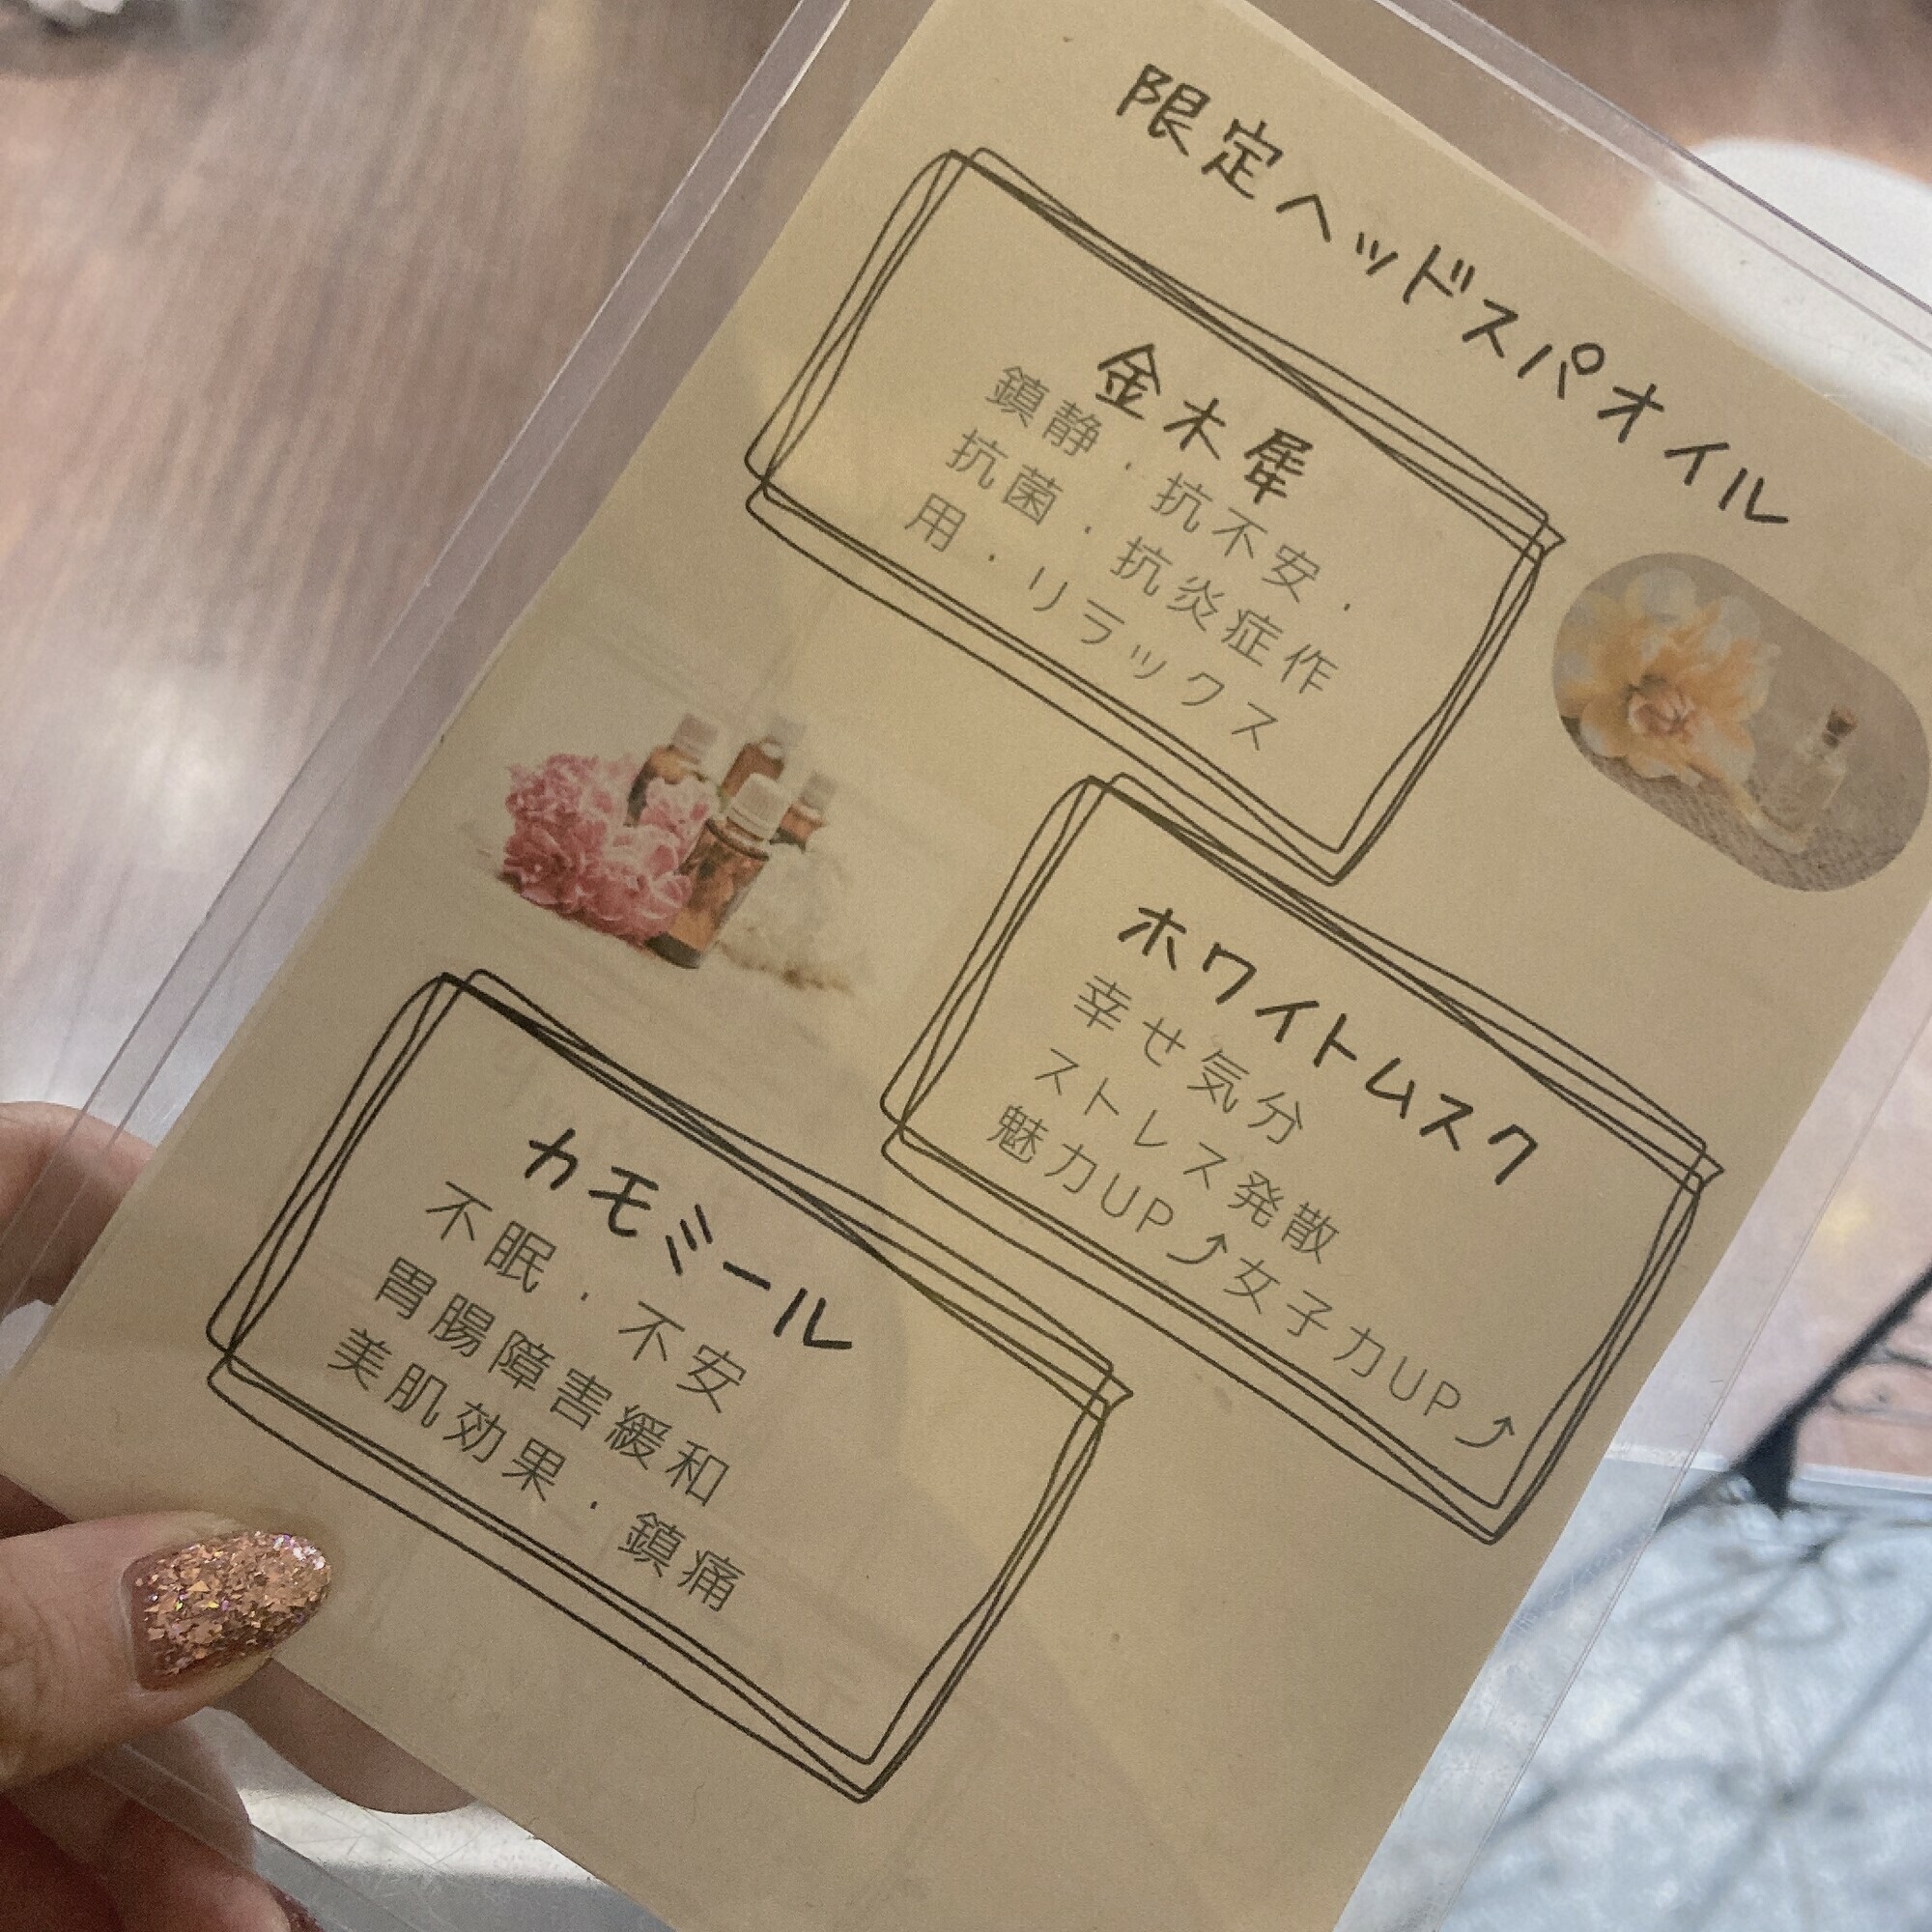 限定ヘッドスパオイル
金木犀
鎮静・抗不安・
抗菌・抗炎症作
用・リラックス
ホワイトムスク
幸せ気分
ストレス発散
魅力UP⤴女子力UP⤴
カモミール
不眠・不安
胃腸障害緩和
美肌効果・鎮痛